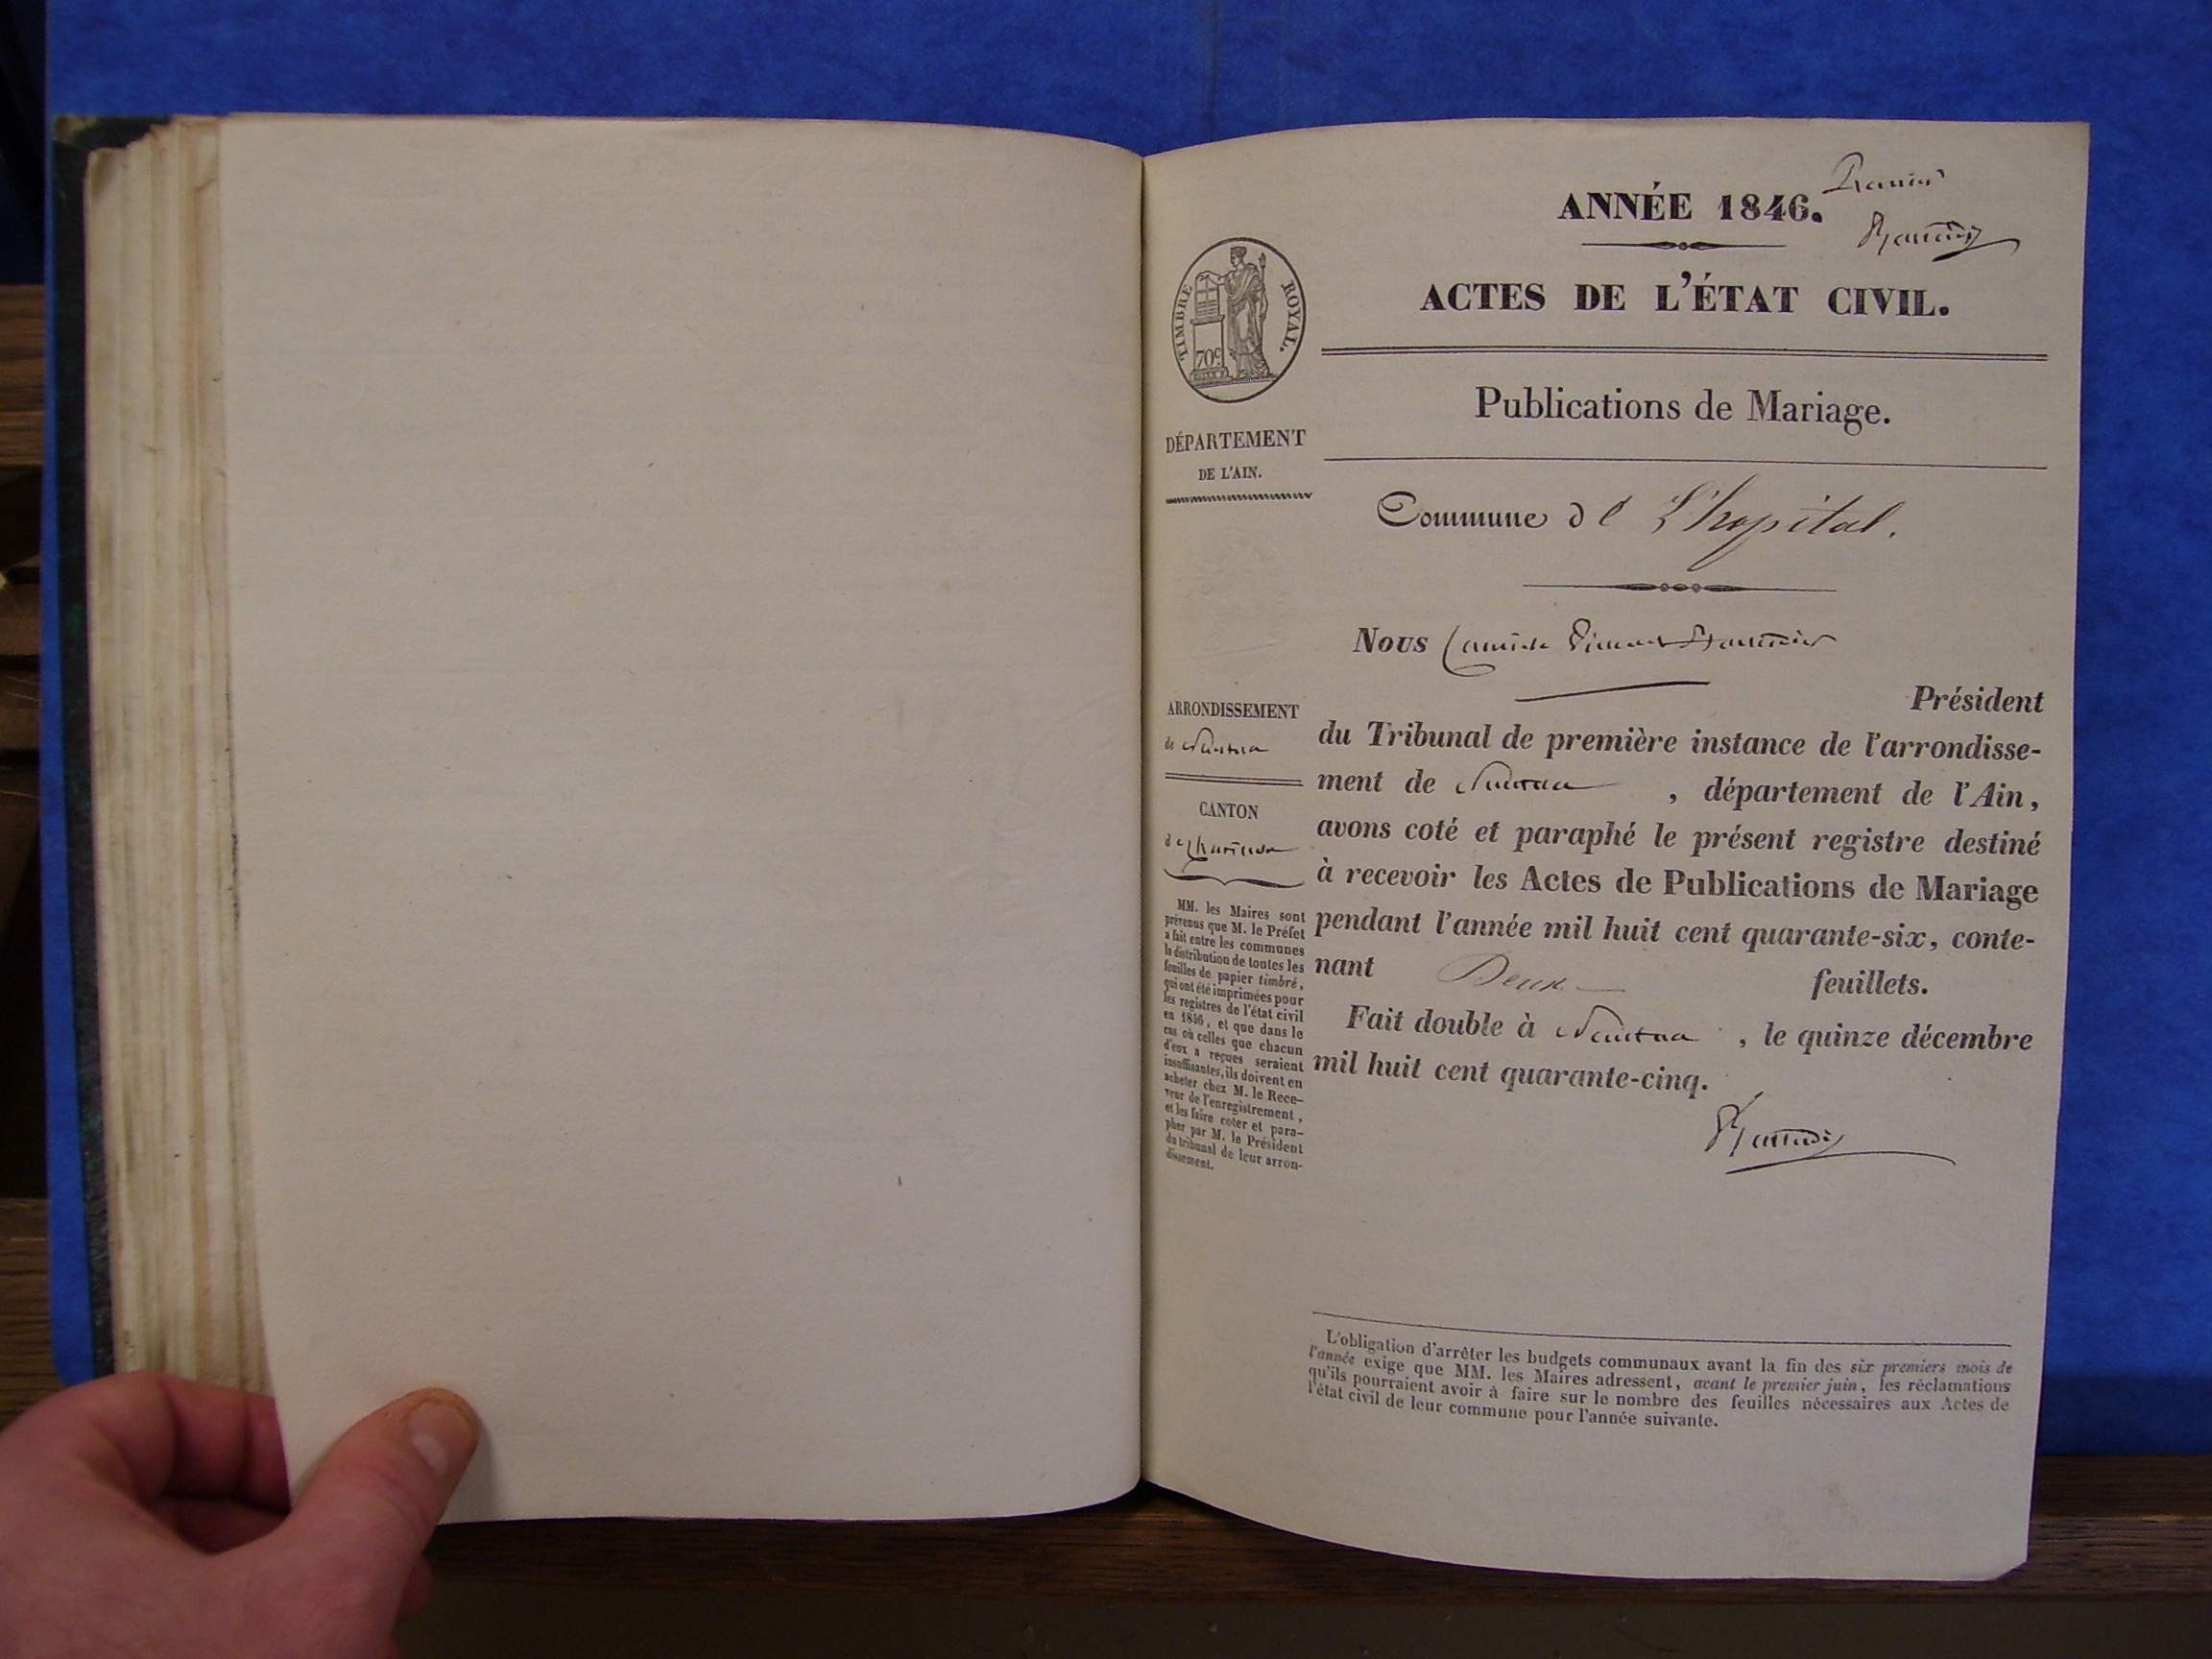 ANNÉE 1846.
Premier
ACTES DE L'ÉTAT CIVIL.
TIMBRE ROYAL.
70c
Publications de Mariage.
DÉPARTEMENT
DE L'AIN.
Commune de L'hopital.
Nous Camille
Président
du Tribunal de première instance de l'arrondisse-
ment de Nantua, département de l'Ain,
avons coté et paraphé le présent registre destiné
à recevoir les Actes de Publications de Mariage
pendant l'année mil huit cent quarante-six, conte-
nant Deux feuillets.
Fait double à Nantua, le quinze décembre
mil huit cent quarante-cinq.
ARRONDISSEMENT
de Nantua
CANTON
de
MM. les Maires sont
prévenus que M. le Préfet
a fait entre les communes
la distribution de toutes les
feuilles de papier timbré,
qui ont été imprimées pour
les registres de l'état civil
en 1846, et que dans le
cas où celles que chacun
d'eux a reçues seraient
insuffisantes, ils doivent en
acheter chez M. le Rece-
veur de l'enregistrement,
et les faire coter et para-
pher par M. le Président
du tribunal de leur arron-
dissement.
L'obligation d'arrêter les budgets communaux avant la fin des six premiers mois de
l'année exige que MM. les Maires adressent, avant le premier juin, les réclamations
qu'ils pourraient avoir à faire sur le nombre des feuilles nécessaires aux Actes de
l'état civil de leur commune pour l'année suivante.